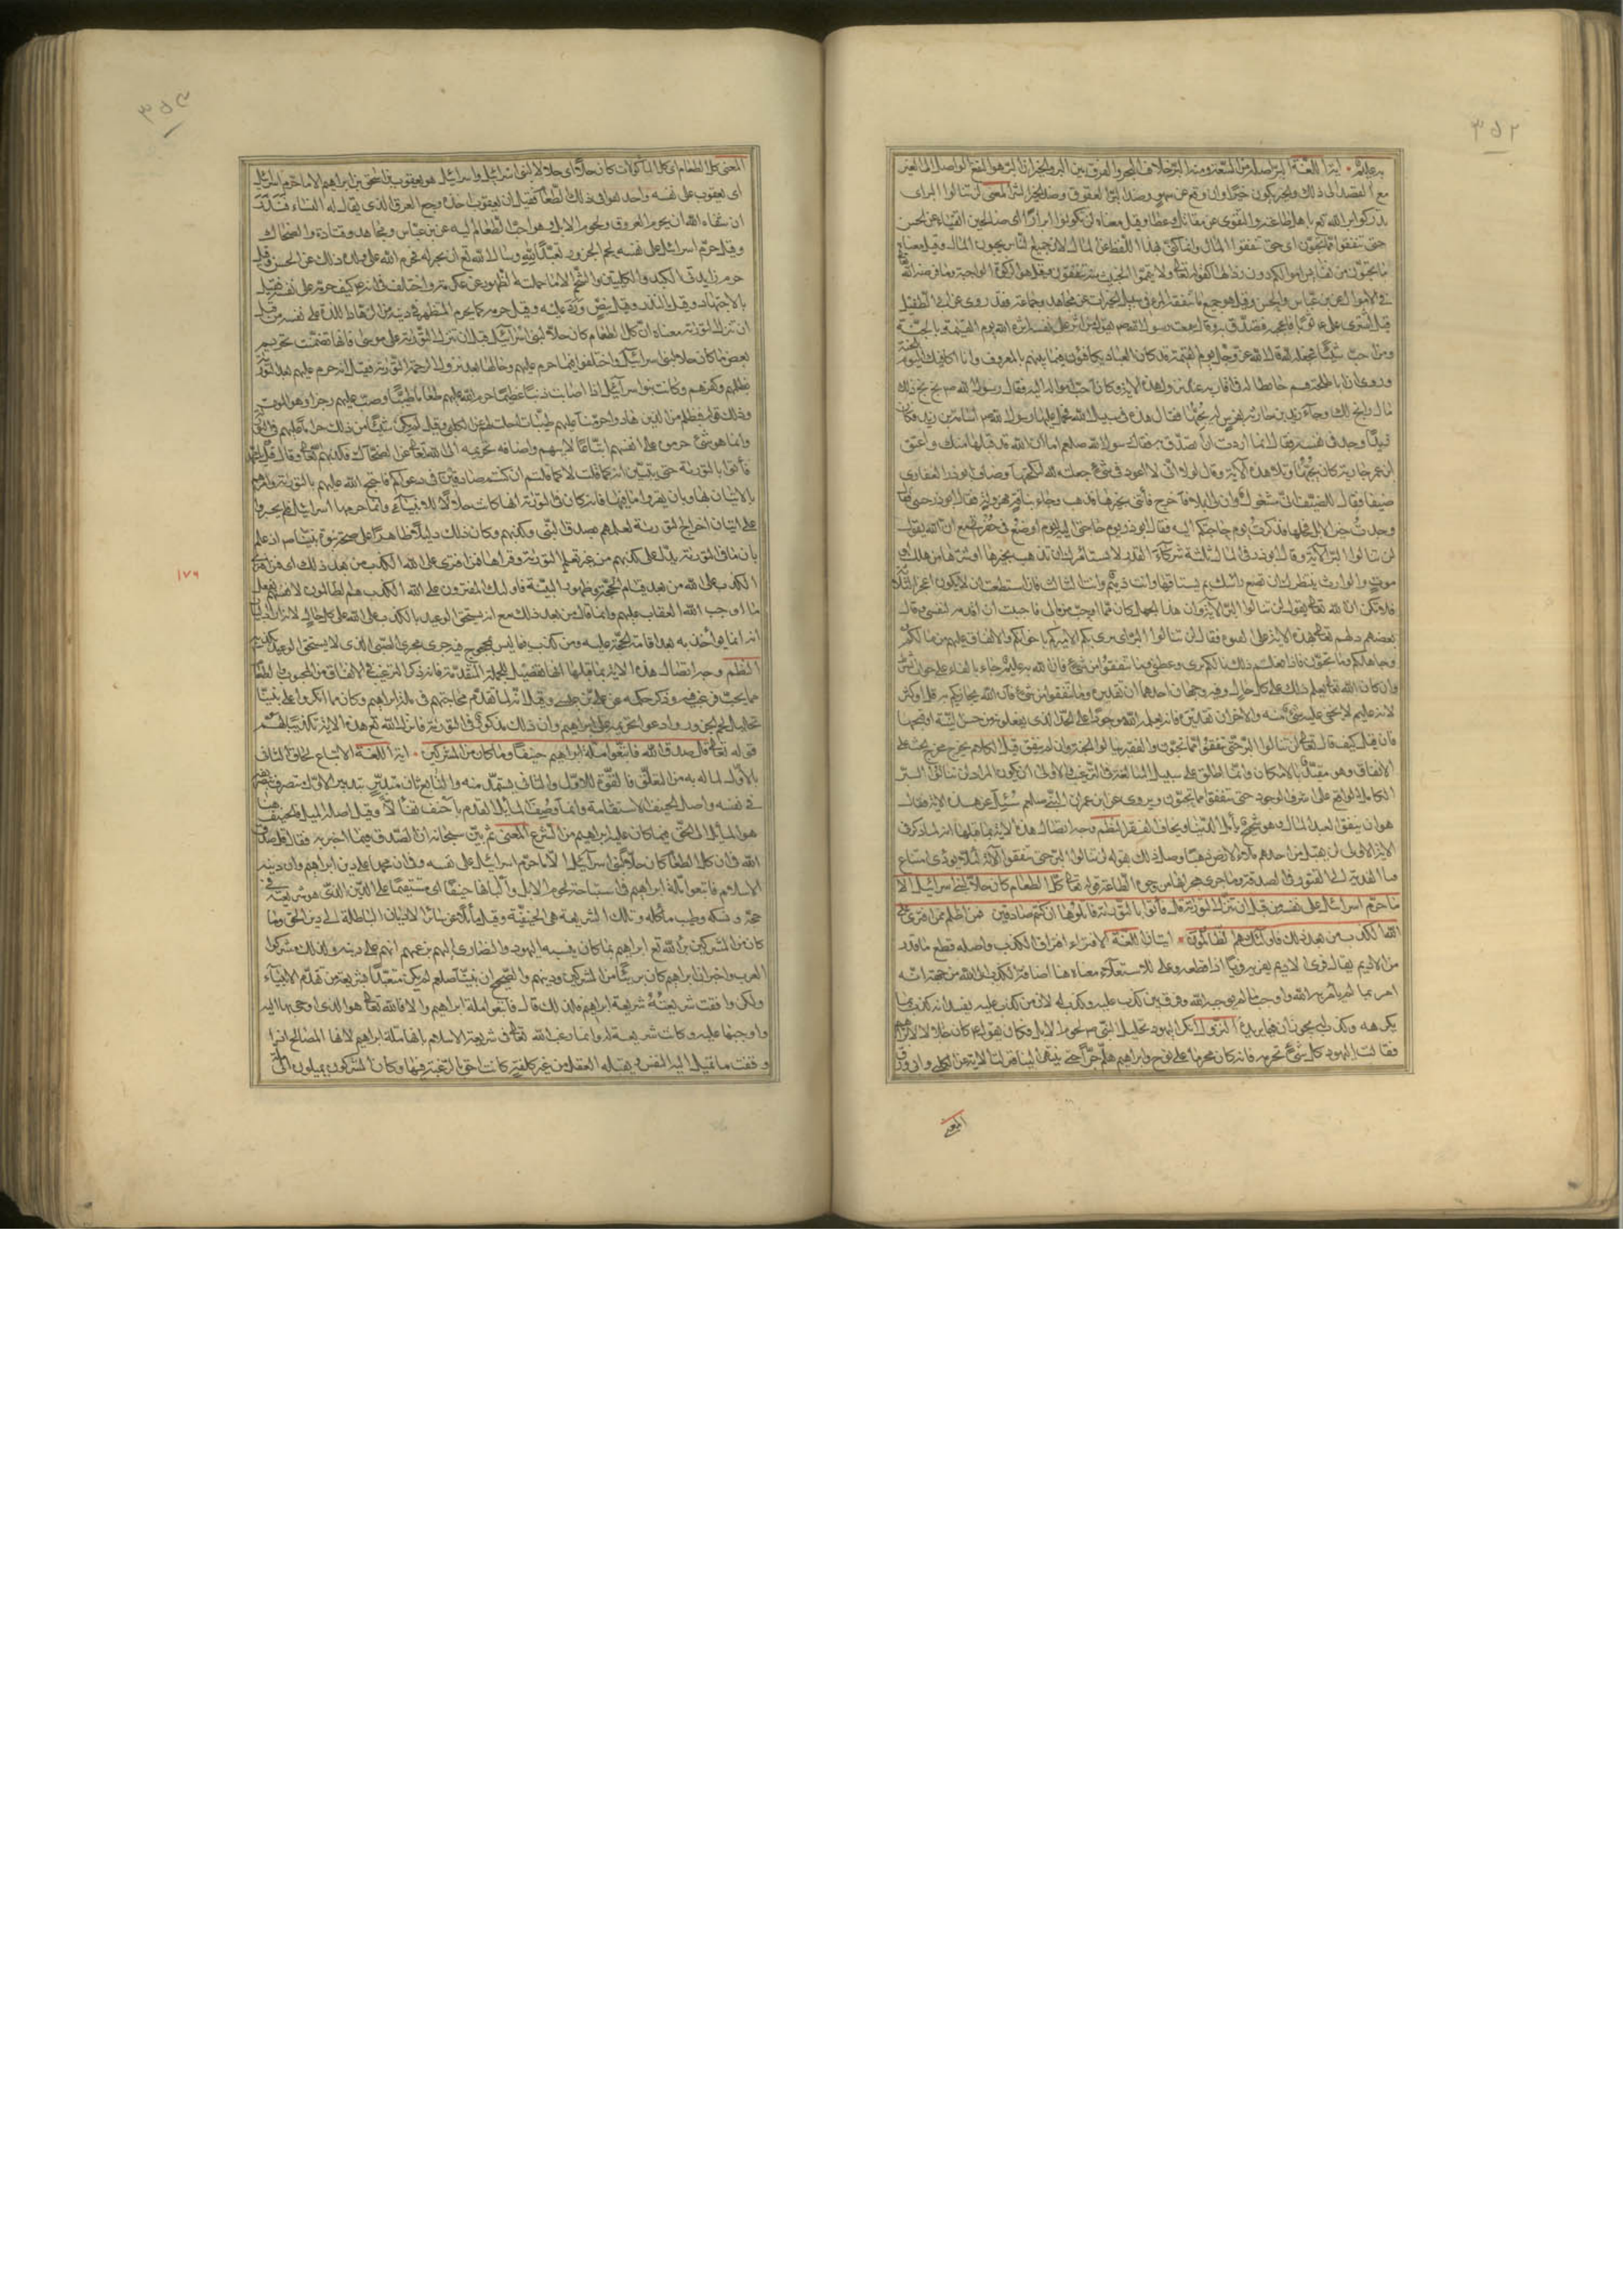 ٣٥٢
به عليم ۰ آية اللغة البر اصله من السعة ومنه البر خلاف البحر والفرق بين البر والخير ان البر هو النفع الواصل الى الغير
مع القصد الى ذلك والخير يكون خيرا وان وقع عن سهو وضد البر العقوق وضد الخير الشر المعنى لن تنالوا البر اى
حتى تنفقوا مما تحبون اى حتى تنفقوا المال وانما كنى بهذا اللفظ عن المال لان جميع الناس يحبون المال وقيل معناه
ما تحبون من نفائس اموالكم دون رذالها كقوله تعالى ولا تيمموا الخبيث منه تنفقون وقيل هو الزكوة الواجبة وما فرضه الله
فى الاموال عن ابن عباس والحسن وقيل هو جميع ما ينفقه المرء فى سبيل الخيرات عن مجاهد وجماعة وقد روى عن ابى الطفيل
قال اشترى على ع ثوبا فاعجبه فتصدق به وقال سمعت رسول الله ص يقول من اثر على نفسه اثره الله يوم القيمة بالجنة
ومن احب شيئا فجعله لله قال الله عز وجل يوم القيمة قد كان العباد يكافؤن فيما بينهم بالمعروف وانا اكافيك اليوم
بالجنة
وروى ان ابا طلحة قسم حائطا له فى اقاربه عند نزول هذه الاية وكان احب امواله اليه فقال رسول الله ص بخ بخ ذلك
مال رابح لك وجاء زيد بن حارثة بفرس له يحبها فقال هذه فى سبيل الله فحمل عليها رسول الله ص اسامة بن زيد فكان
زيدا وجد فى نفسه وقال انما اردت ان اتصدق به فقال رسول الله صلعم اما ان الله قد قبلها منك واعتق
ابن عمر جارية كان يحبها وتلا هذه الآية وقال لولا انى لا اعود فى شئ جعلته لله لنكحتها واضاف ابو ذر الغفارى
ضيفا فقال للضيف انى مشغول وان لى ابلا فاخرج فأتنى بخيرها فذهب وجاء بناقة مهزولة فقال ابو ذر خنتنى بهذه فقال
وجدت خير الابل فحلها فذكرت يوم حاجتكم اليه فقال ابو ذر ان يوم حاجتى اليه ليوم اوضع فى حفرتى مع ان الله يقول
لن تنالوا البر الآية وقال ابو ذر فى المال ثلثة شركاء القدر لا يستأمرك ان يذهب بخيرها او شرها من هلك او
موت والوارث ينتظرك ان تضع راسك ثم يستاقها وانت ذميم وانت الثالث فان استطعت ان لا تكون اعجز الثلثة
فلا تكن ان الله تعالى يقول لن تنالوا البر الآية وان هذا الجمل كان مما احب من مالى فاحببت ان اقدمه لنفسى وقال
بعضهم دلهم تعالى بهذه الاية على الفتوة فقال لن تنالوا البر اى برى بكم الا ببركم باخوانكم والانفاق عليهم من مالكم
وجاهكم وما تحبون فاذا فعلتم ذلك نالكم برى وعطفى وما تنفقوا من شئ فان الله به عليم جاء بالفاء على جواب الشرط
وان كان الله تعالى يعلم ذلك على كل حال وفيه وجهان احدهما ان تقديره وما تنفقوا من شئ فان الله يجازيكم به قل او كثر
لانه عليم لا يخفى عليه شئ منه والاخر ان تقديره فانه يعلمه الله موجودا على الحد الذى يفعلونه من حسن النية او قبحها
فان قيل كيف قال تعالى لن تنالوا البر حتى تنفقوا مما تحبون والفقير ينال الجنة وان لم ينفق قيل الكلام يخرج مخرج الحث على
الانفاق وهو مقيد بالامكان وانما اطلق على سبيل المبالغة فى الترغيب والاولى ان يكون المراد لن تنالوا البر
الكامل الواقع على اشرف الوجوه حتى تنفقوا مما تحبون ويروى عن ابن عمر ان النبى صلعم سئل عن هذه الاية فقال
هو ان ينفق العبد المال وهو شحيح يأمل الدنيا ويخاف الفقر النظم وجه اتصال هذه الاية بما قبلها انه لما ذكر فى
الاية الاولى لن يقبل من احدهم ملء الارض ذهبا وصل ذلك بقوله لن تنالوا البر حتى تنفقوا الآية لئلا يؤدى امتناع
غناء الفدية الى الفتور فى الصدقة وما جرى مجراها من وجوه الطاعة قوله تعالى كل الطعام كان حلا لبنى اسرائيل الا
ما حرم اسرائيل على نفسه من قبل ان تنزل التورية قل فأتوا بالتورية فاتلوها ان كنتم صادقين فمن افترى على
الله الكذب من بعد ذلك فاولئك هم الظالمون ۰ آيتان اللغة الافتراء اقتراف الكذب واصله قطع ما قدر
من الاديم يقال فرى الاديم يفريه فريا اذا قطعه وعلى للاستعلاء معناه هنا اضافة الكذب الى الله من جهة انه
امر بما لم يأمر به الله واوجب ما لم يوجبه الله وفرق بين كذب عليه وكذب له لان من كذب عليه يفيد انه كذب فيما
يكرهه وكذب له يجوز ان فيما يريده النزول انكر اليهود تحليل النبى ص لحوم الابل فكان يقول ع كان حلالا لابراهيم
وقالت اليهود كل شئ نحرمه فانه كان محرما على نوح وابراهيم هلم جرا حتى ينتهى الينا فنزلت الاية عن الكلبى وابى روق
المعنى
٣٥٣
المعنى كل الطعام اى كل المأكولات كان حلا اى حلالا لبنى اسرائيل واسرائيل هو يعقوب بن اسحق بن ابراهيم الا ما حرم اسرائيل
اى يعقوب على نفسه واختلفوا فى ذلك الطعام فقيل ان يعقوب اخذه وجع العرق الذى يقال له النساء فنذر
ان شفاه الله ان يحرم العروق ولحوم الابل وهو احب الطعام اليه عن ابن عباس ومجاهد وقتادة والضحاك
وقيل حرم اسرائيل على نفسه لحم الجزور تعبدا لله وسأل الله تعالى ان يجيز له فحرم الله على ولده ذلك عن الحسن وقيل
حرم زايدتى الكبد والكليتين والشحم الا ما حملته الظهور عن عكرمة واختلف فى انه ع كيف حرمه على نفسه فقيل
بالاجتهاد وقيل بالنذر وقيل بنص ورد عليه وقيل حرمه كما يحرم المستظهر فى دينه من الزهاد اللذة على نفسه من قبل
ان تنزل التورية معناه ان كل الطعام كان حلا لبنى اسرائيل قبل ان تنزل التورية على موسى فانها تضمنت تحريم
بعض ما كان حلا لبنى اسرائيل واختلفوا فيما حرم عليهم وحالها بعد نزول التورية فقيل انه حرم عليهم بعد التورية
بظلمهم وكفرهم وكانت بنو اسرائيل اذا اصابت ذنبا عظيما حرم الله عليهم طعاما طيبا وصب عليهم رجزا وهو الموت
وذلك قوله فبظلم من الذين هادوا حرمنا عليهم طيبات احلت لهم عن الكلبى وقيل لم يكن شيئا من ذلك حراما عليهم فى التورية
وانما هو شئ حرموه على انفسهم اتباعا لابيهم واضافوا تحريمه الى الله تعالى عن الضحاك فكذبهم الله تعالى وقال قل يا محمد
فأتوا بالتورية حتى يتبين انه كما قلت لا كما قلتم ان كنتم صادقين فى دعواكم فاحتج الله عليهم بالتورية وامرهم
بالاتيان بها وبان يقرءوا ما فيها فانه كان فى التورية انها كانت حلالا للانبياء وانما حرمها اسرائيل فلم يجسروا
على اتيان اخراج التورية لعلمهم بصدق النبى وكذبهم وكان ذلك دليلا ظاهرا على صحة نبوة نبينا ص اذ علم
بان ما فى التورية يدل على كذبهم من غير تعلم التورية وقراءتها فمن افترى على الله الكذب من بعد ذلك اى فمن افترى
١٧٩
الكذب على الله من بعد قيام الحجة وظهور البينة فاولئك المفترون على الله الكذب هم الظالمون لانفسهم بفعل
ما اوجب الله العقاب عليهم وانما قال من بعد ذلك مع انه يستحق الوعيد بالكذب على الله على كل حال لانه اراد بيان
انه انما يؤاخذ به بعد اقامة الحجة عليه ومن كذب فيما ليس بمحجوج فيه جرى مجرى الصبى الذى لا يستحق الوعيد بكذبه
النظم وجه اتصال هذه الاية بما قبلها انها تفصيل للجملة المتقدمة فانه ذكر الترغيب فى الانفاق من المحبوب والطعام
مما يحب فرغب فيه وذكر حكمه عن على بن عيسى وقيل انه لما تقدم محاجتهم فى ملة ابراهيم وكان مما انكروا على نبينا
تحليل لحم الجزور وادعوا تحريمه على ابراهيم وان ذلك مذكور فى التورية فانزل الله تعالى هذه الاية تكذيبا لهم
قوله تعالى قل صدق الله فاتبعوا ملة ابراهيم حنيفا وما كان من المشركين ۰ آية اللغة الاتباع لحاق الثانى
بالاول لما له به من التعلق فالقوة للاول والثانى يستمد منه والتابع ثان متدبر بتدبير الاول متصرف بتصريفه
فى نفسه واصل الحنيف الاستقامة وانما وصف المائل القدم باحنف تفألا وقيل اصله الميل فالحنيف هنا
هو المائل الى الحق فيما كان عليه ابراهيم من الشرع المعنى ثم بين سبحانه ان الصدق فيما اخبر به فقال قل صدق
الله فى ان كل الطعام كان حلا لبنى اسرائيل الا ما حرم اسرائيل على نفسه وفى ان محمدا على دين ابراهيم وان دينه
الاسلام فاتبعوا ملة ابراهيم فى استباحة لحوم الابل والبانها حنيفا اى مستقيما على الدين الذى هو شريعته فى
حجه ونسكه وطيب مأكله وتلك الشريعة هى الحنيفية وقيل مائلا عن سائر الاديان الباطلة الى دين الحق وما
كان من المشركين برأ الله تع ابراهيم مما كان ينسبه اليهود والنصارى اليه بزعمهم انهم على دينه وكذلك مشركوا
العرب واخبر ان ابراهيم كان بريئا من المشركين ودينهم والصحيح ان نبينا صلعم لم يكن متعبدا بشريعة من تقدم الانبياء
ولكن وافقت شريعته شريعة ابراهيم فلذلك قال فاتبعوا ملة ابراهيم والا فالله تعالى هو الذى اوحى بها اليه
واوجبها عليه وكانت شريعة له وانما رغب الله تعالى فى شريعة الاسلام بانها ملة ابراهيم لانها المصالح اذا
وافقت ما تميل اليه النفس ويقبله العقل من غير كلفة كانت احق بالرغبة فيها وكان المشركون يميلون الى